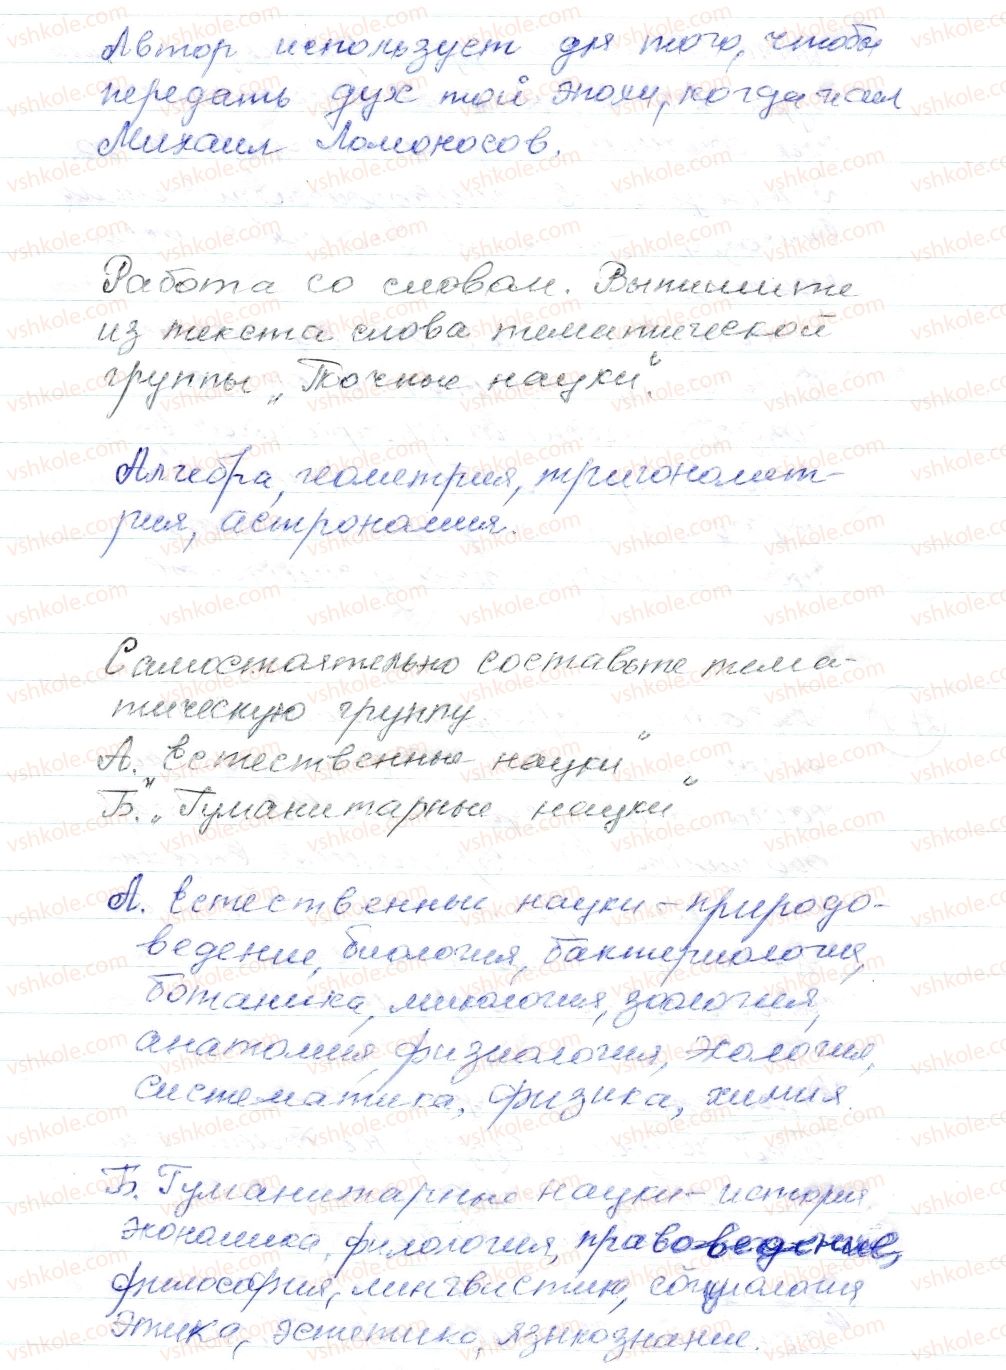 Автор использует для того, чтобы
передать дух той эпохи, когда жил
Михаил Ломоносов.
Работа со словом. Выпишите
из текста слова тематической
группы „Точные науки“.
Алгебра, геометрия, тригономет-
рия, астрономия.
Самостоятельно составьте тема-
тическую группу
А. „Естественные науки“
Б. „Гуманитарные науки“
А. Естественные науки – природо-
ведение, биология, бактериология,
ботаника, микология, зоология,
анатомия, физиология, экология,
систематика, физика, химия.
Б. Гуманитарные науки – история,
экономика, филология, правоведение,
философия, лингвистика, социология
этика, эстетика, языкознание.